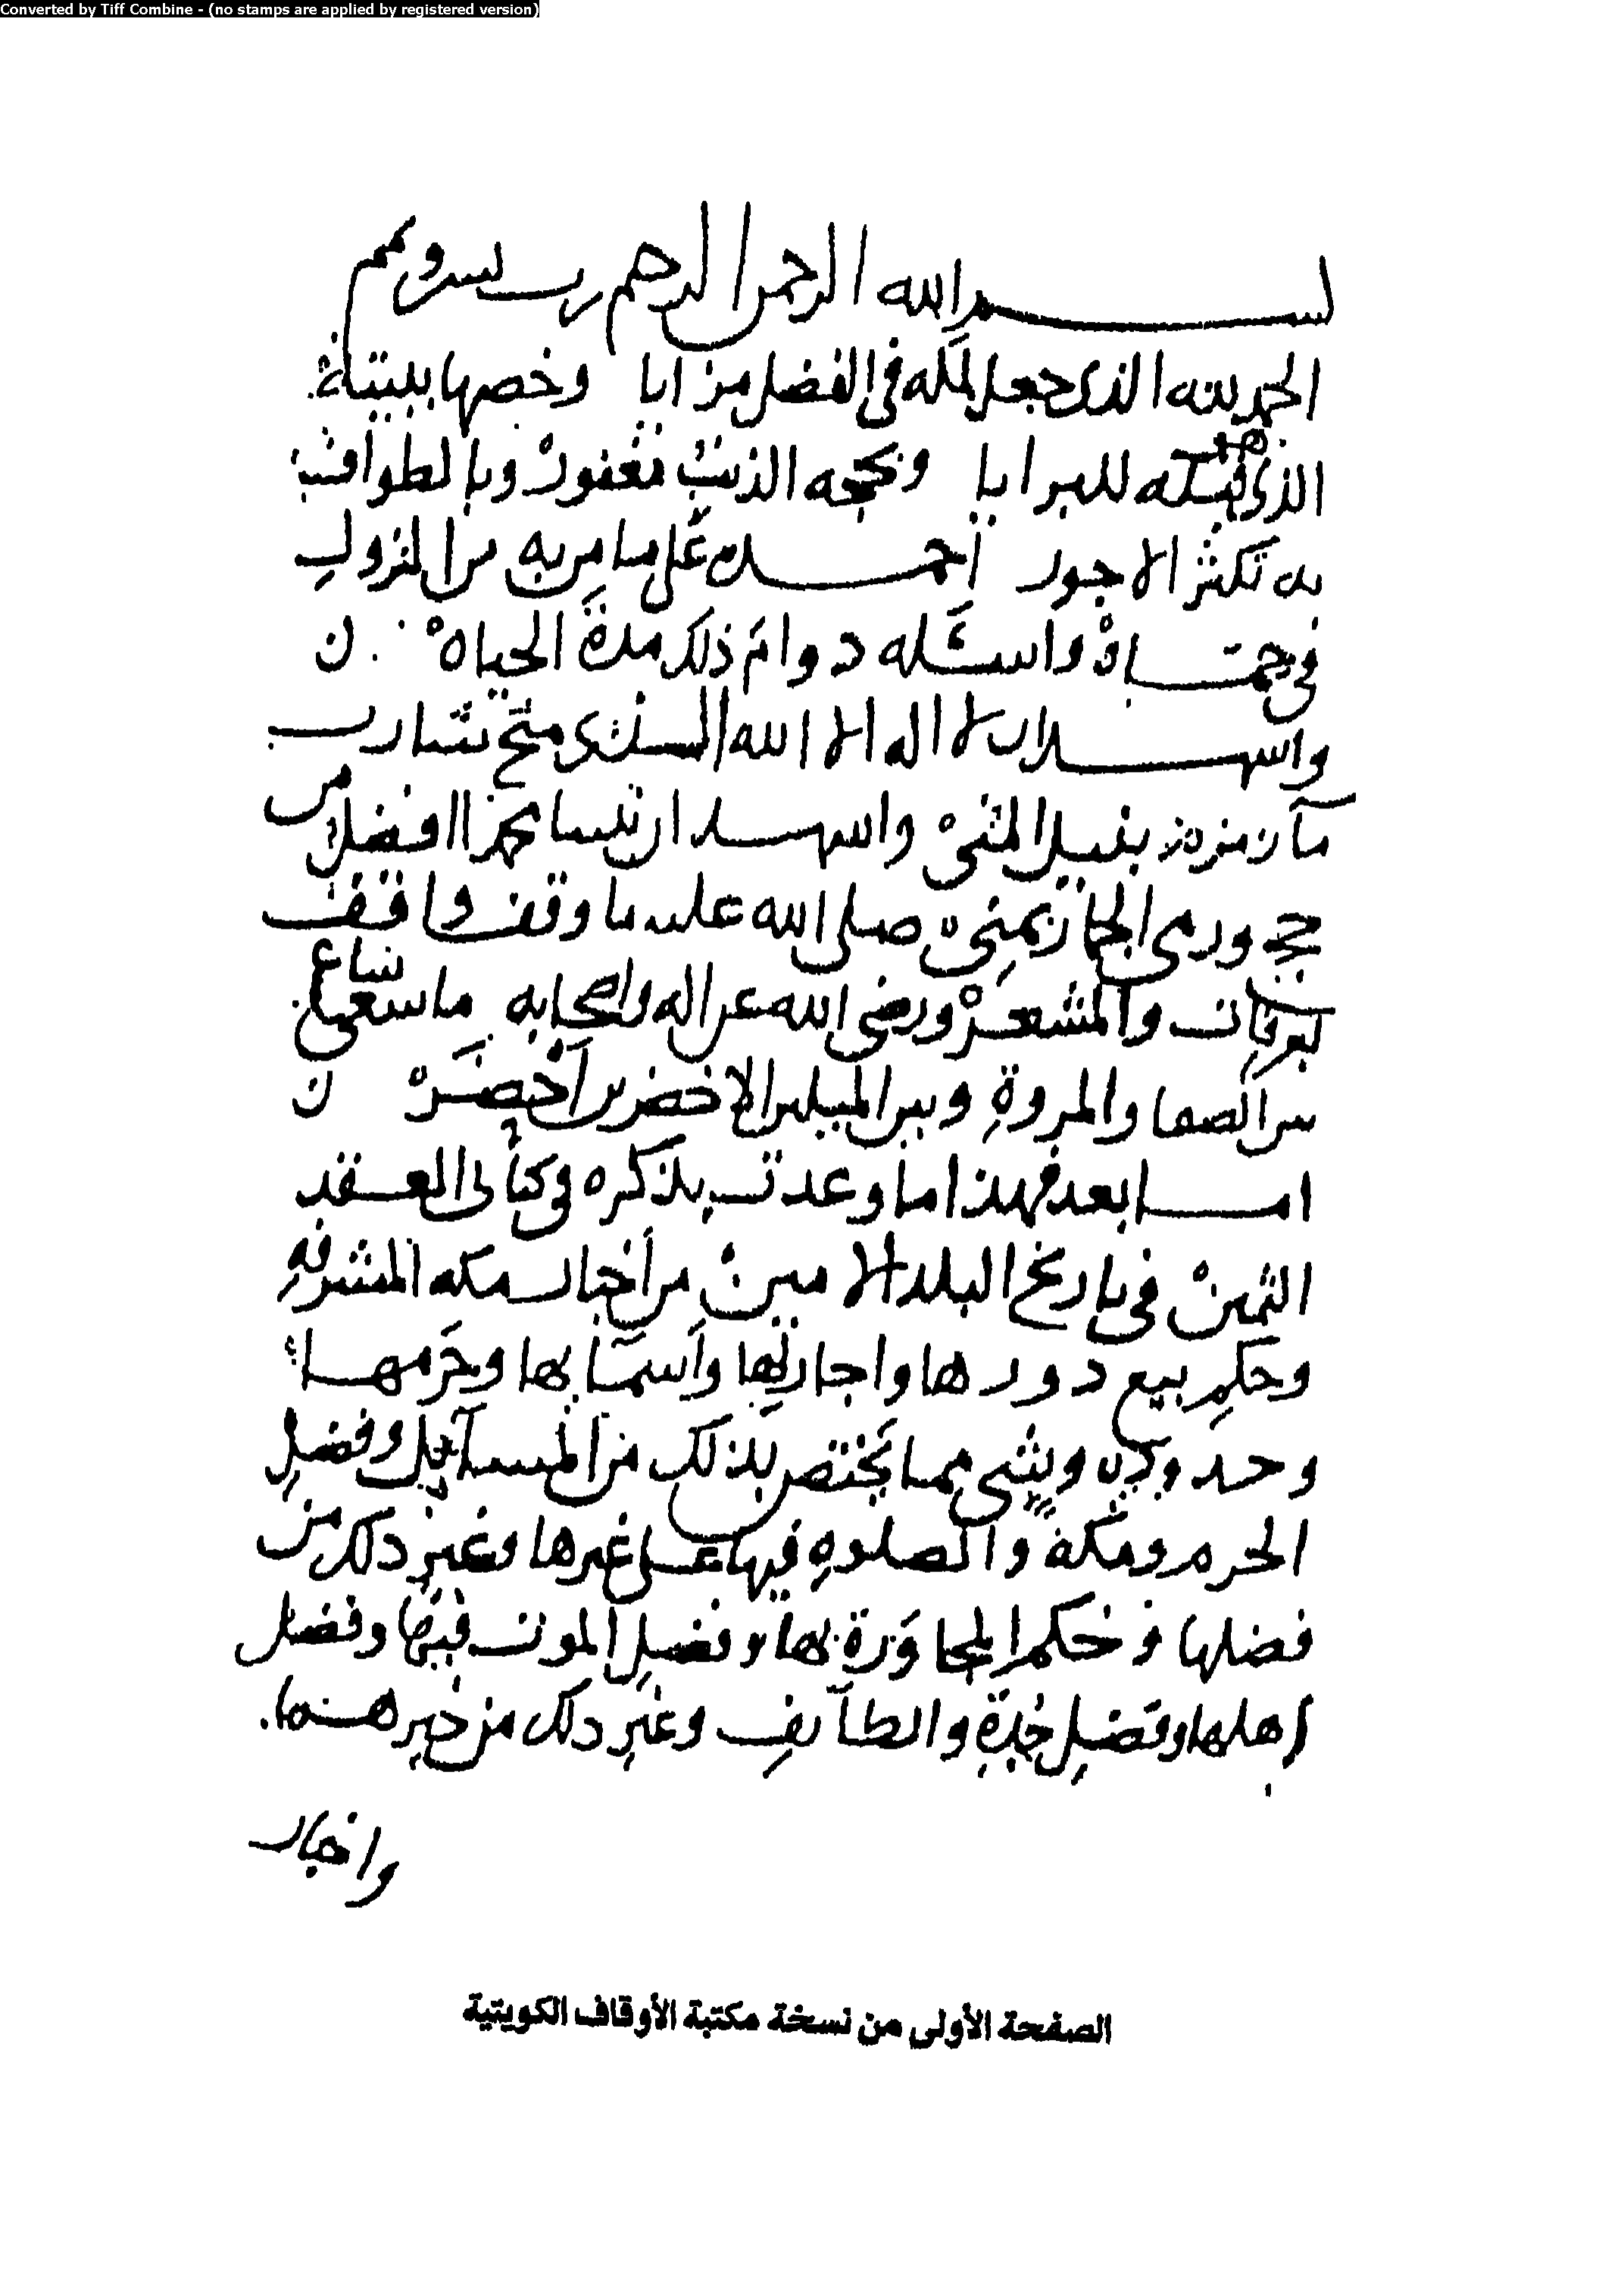 Converted by Tiff Combine - (no stamps are applied by registered version)
بسم الله الرحمن الرحيم رب يسر وتمم
الحمد لله الذى جعل لمكه فى الفضل مزايا وخصها ببيته
الذى للبرايا وبحجه الذنب مغفور وبالطواف
به تكثر الاجور احمده على ما من به من النزول
فى حماه واسئله دوام ذلك مدة الحياه ن
واشهد ان لا اله الا الله الذى منح شارب
مآ زمزم بنيل المنى واشهد ان نبينا محمدا افضل من
حج ورمى الجمار بمنى صلى الله عليه ما وقف واقف
بعرفات والمشعر ورضى الله عن اله واصحابه ما سعى ساع
بين الصفا والمروة وبين الميلين الاخضرين اخضر ن
اما بعد فهذا ما وعدت بذكره فى كتابى العقد
الثمين فى تاريخ البلد الامين من اخبار مكه المشرفه
وحكم بيع دورها واجارتها واسمآيها وحرمها
وحدوده وشى مما يختص بذلك من المسآيل وفضل
الحرم ومكة والصلوه فيها على غيرها وغير ذلك من
فضلها وحكم المجاورة بها وفضل الموت فيها وفضل
اهلها وفضل جدة والطآيف وغير ذلك من خبرهما
واخبار
الصفحة الأولى من نسخة مكتبة الأوقاف الكويتية